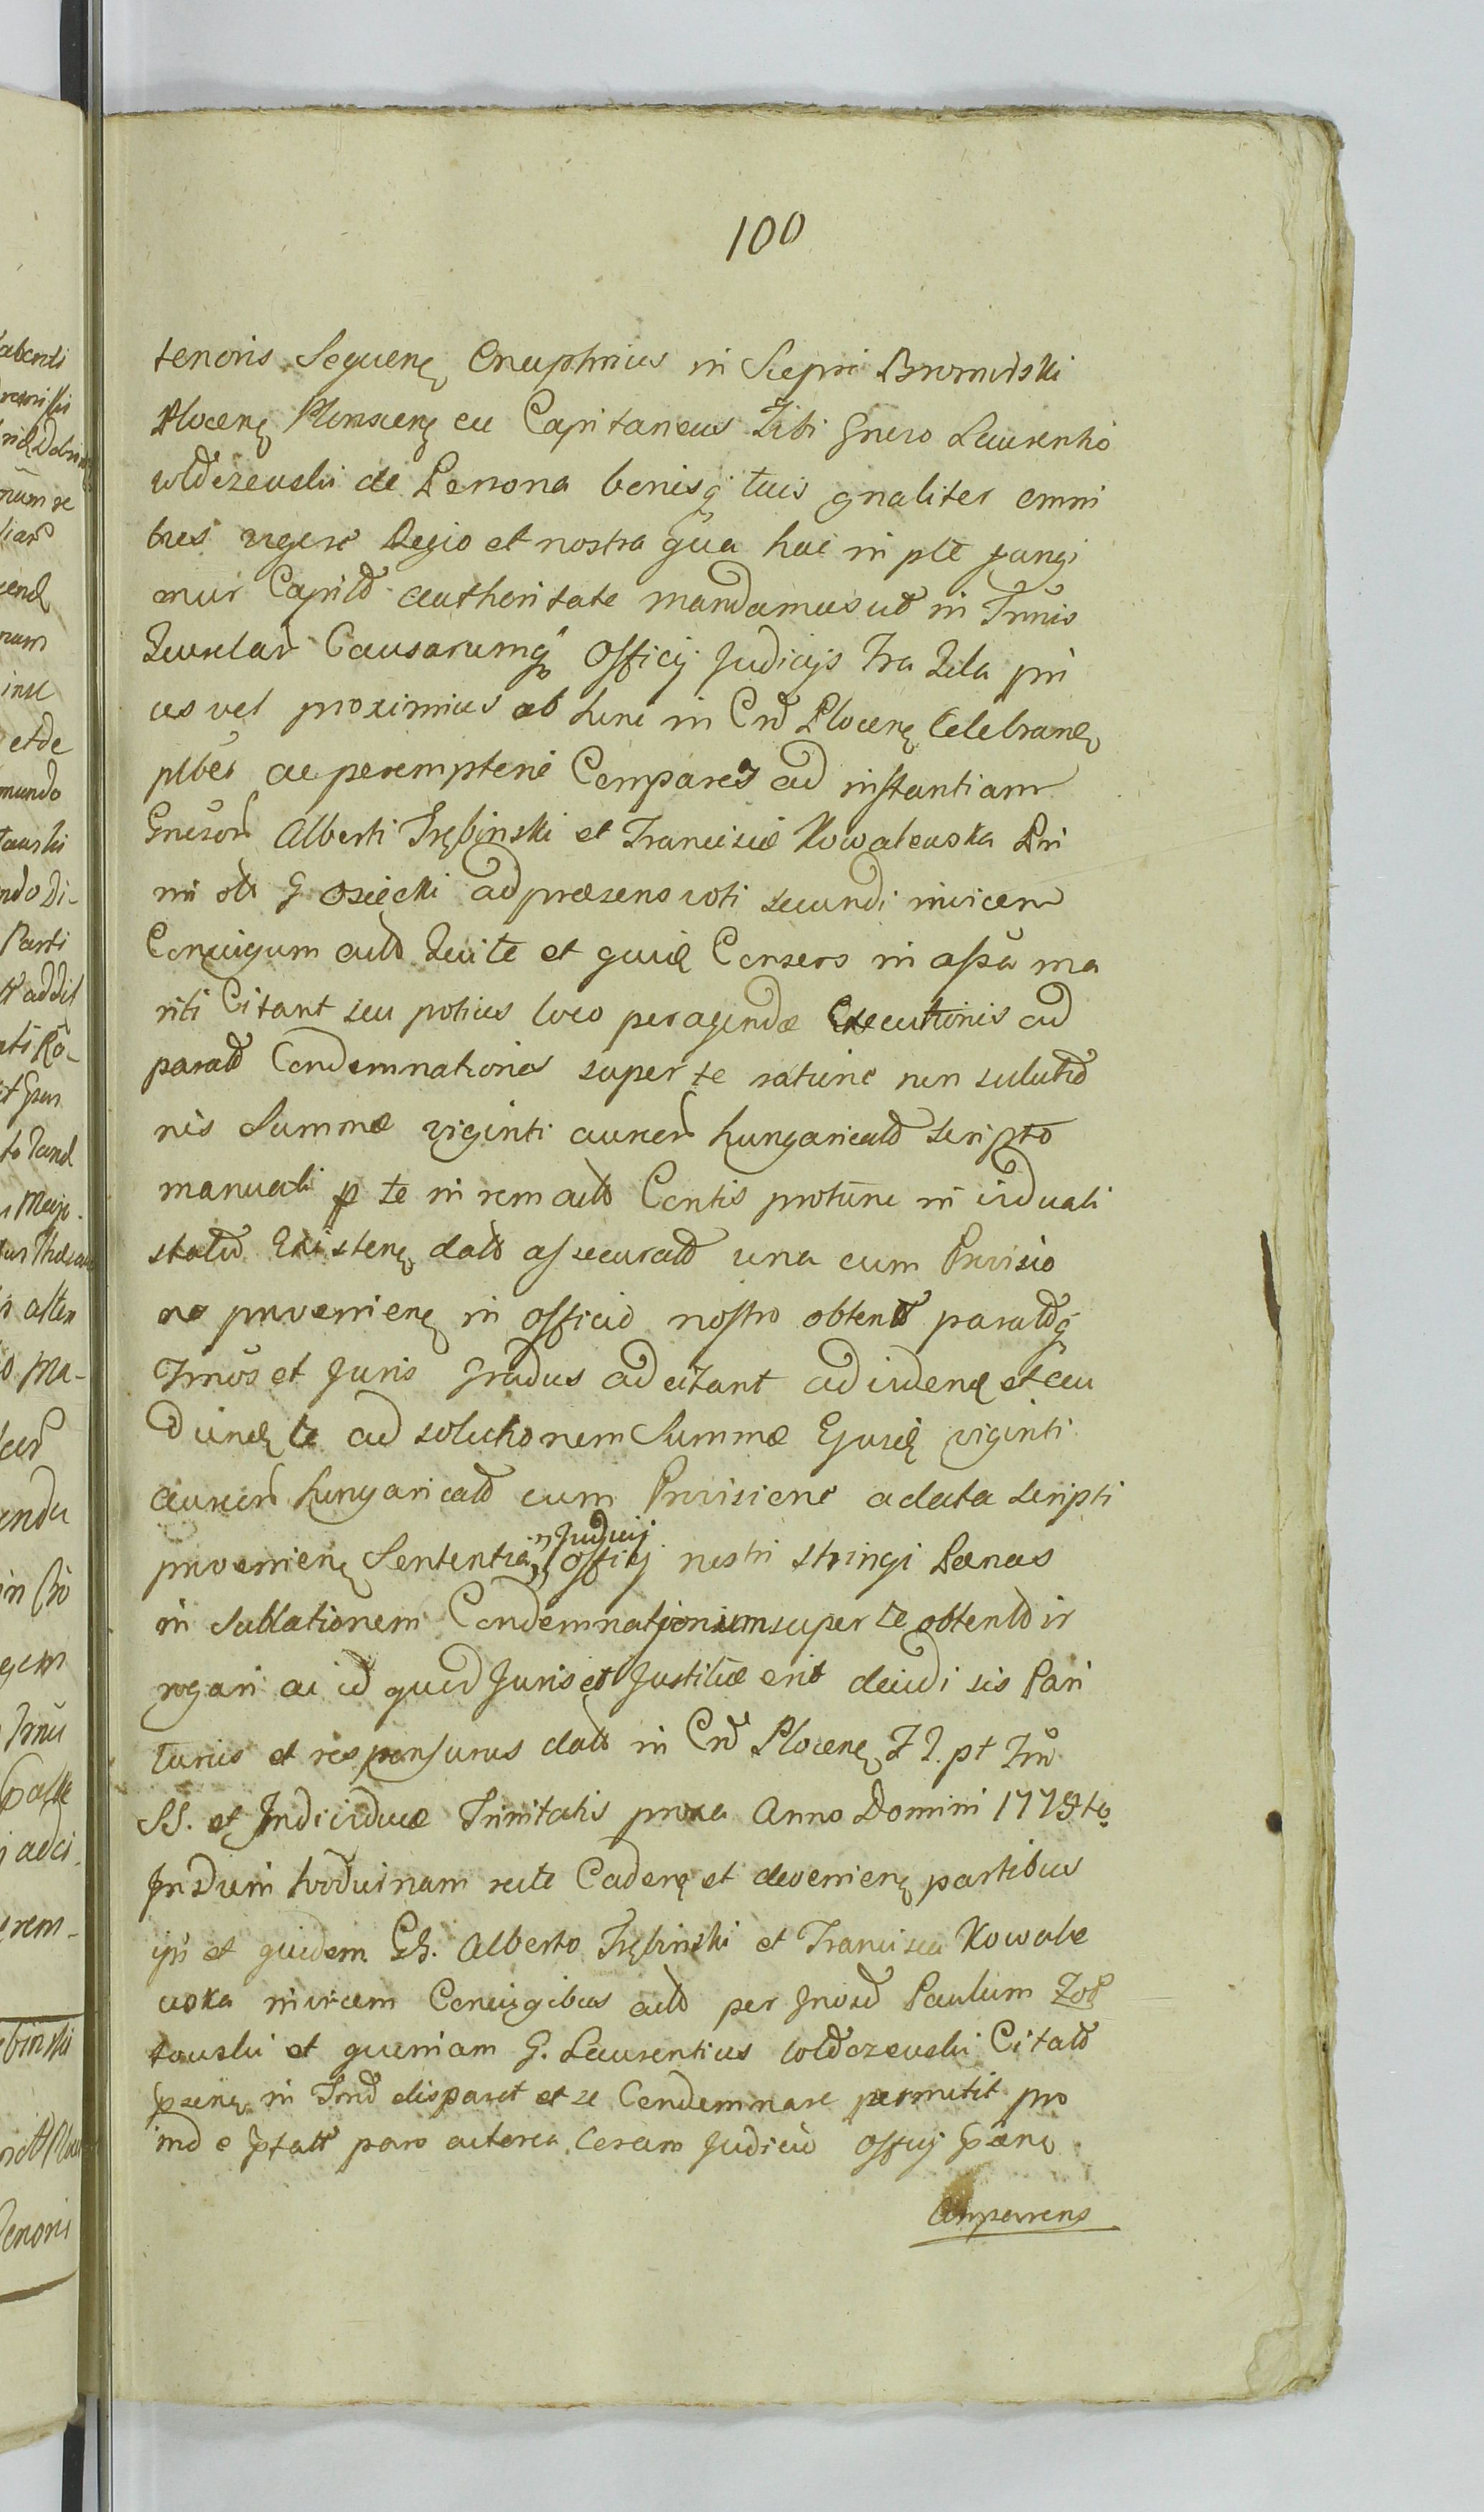 100
tenoris Sequenꝭ Onuphrius in Siepri Bromirski
Plocenꝭ Plonscenꝭ cu Capitaneus Tibi Gneroso Laurentio
Wołdzewski de Persona bonisq tuis gnaliter omni
bus vigore Regio et nostra qua hac in pte fungi
mur Capitð authoritate mandamus ut in Trmis
Querelarð Causarumq Officij Judicijs Fra 2da pri
us vel proximius ab hinc in Crð Plocenꝭ Celebranꝭ
plbes ac peremptorie Compareas ad instantiam
Gnesorð Alberti Trębinski et Francisca Kowalewska Pri
mi oli G Osiecki ad præsens voti secundi invicem
Conjugum autð Tui te et quid Consors in assa ma
riti Citant seu potius loco peragendæ Executionis ad
paratð Condemnationes super te ratione non solutio
nis Summæ viginti aureorð hungaricatð scripto
manuali p te in rem actð Contis protunc in viduali
statu Existenꝭ datð assecuratð una cum Provisio
ne provenienꝭ in officio nostro obtentð paratðq
Trmos et Juris gradus adcitant ad videnꝭ et au
diendꝭ te ad solutionem Summæ Ejusdꝭ viginti
aureorð hungaricatð cum Provisione a data scripti
provenienꝭ Sententia Judicij officij nostri stringi Pœnas
in Sublationem Condemnationum super te obtentð ir
rogari ac id quid Juris et Justitiæ erit decidi sis Pari
turus et responsurus datð in Crð Plocenꝭ F 2. pt Fm
SS. et Individuæ Trinitatis proxa Anno Domini 1778to
In Diem hodiernam recte Cadenꝭ et devenienꝭ partibus
ips et quidem GG. Alberto Trębinski et Francisca Kowale
wska invicem Conjugibus actð per Gnosð Paulum Zoł
towski et quoniam G. Laurentius Wołdzewski Citatð
psenꝭ in Tmð disparet et se Condemnare permitit pro
ind e ptatð pars actorea Coram Judicio Officij psenꝭ
Comparens